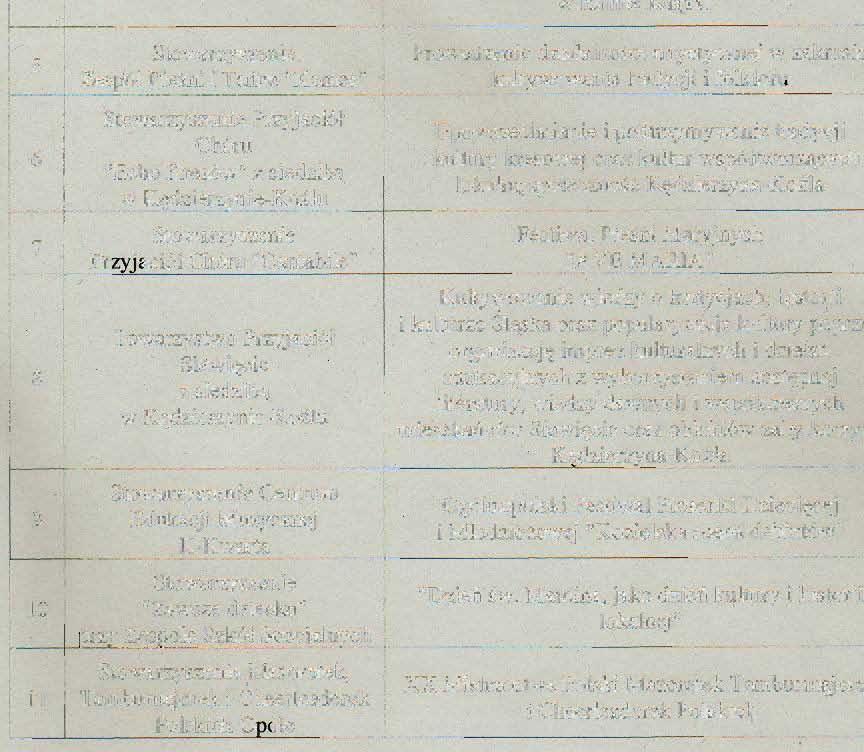 5
Stowarzyszenie
Zespół Pieśni i Tańca "Komes"
Prowadzenie działalności artystycznej w zakresie
kultywowania tradycji i folkloru
6
Stowarzyszenie Przyjaciół
Chóru
"Echo Kresów" z siedzibą
w Kędzierzynie-Koźlu
Upowszechnianie i podtrzymywanie tradycji
kultury kresowej oraz kultur współtworzących
lokalną społeczność Kędzierzyna-Koźla
7
Stowarzyszenie
Przyjaciół Chóru "Cantabile"
Festiwal Pieśni Maryjnych
"AVE MARIA"
8
Towarzystwo Przyjaciół
Sławięcic
z siedzibą
w Kędzierzynie-Koźlu
Kultywowanie wiedzy o tradycjach, historii
i kulturze Śląska oraz popularyzacja kultury poprzez
organizację imprez kulturalnych i
z wykorzystaniem dostępnej
literatury, wiedzy dawnych i współczesnych
mieszkańców Sławięcic oraz obiektów
Kędzierzyna-Koźla
9
Stowarzyszenie Centrum
Edukacji Muzycznej
K-Kwarta
Ogólnopolski Festiwal Piosenki Dziecięcej
i Młodzieżowej "Kozielska scena debiutów
10
Stowarzyszenie
"Zawsze dziecku"
przy Zespole Szkół Specjalnych
"Dzień św. Marcina, jako dzień kultury i historii
lokalnej"
11
Stowarzyszenie Mażoretek,
Tamburmajorek i Cheerleaderek
Polskich Opole
XX Mistrzostwa Polski Mażoretek Tamburmajorek
i Cheerleaderek Polskich